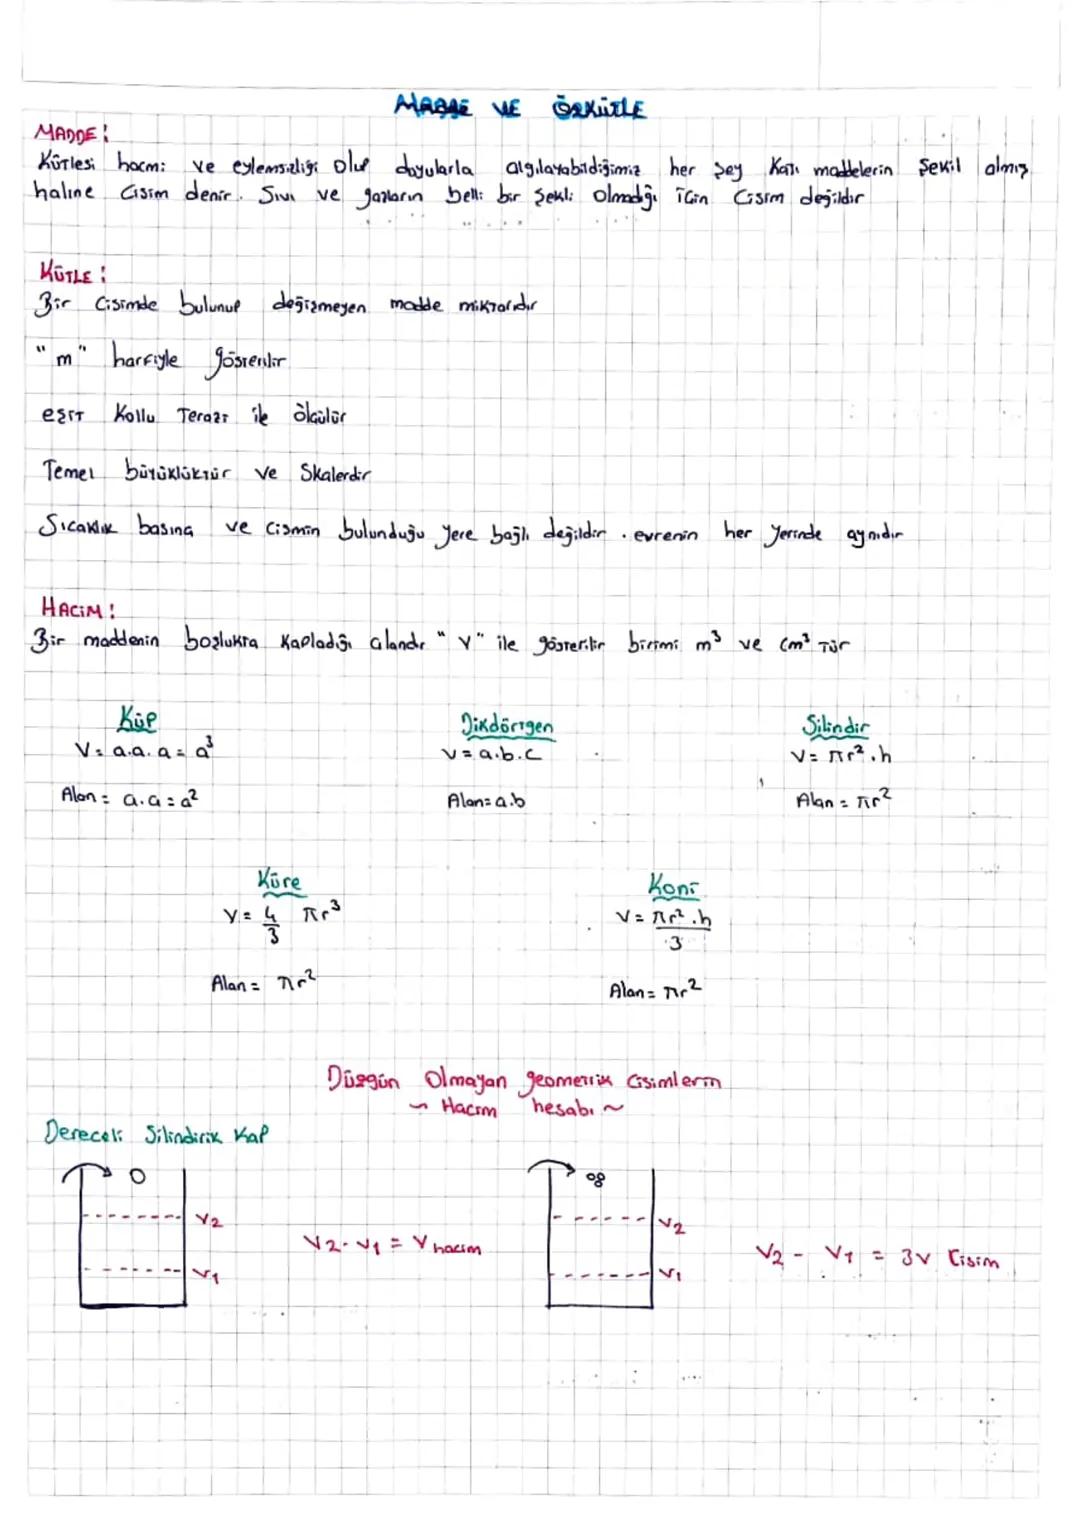 MADDE VE ÖZKÜTLE
MADDE:
Kütlesi hacmi ve eylemsizliği olup duyularla algılayabildiğimiz her şey Katı maddelerin şekil almış
haline Cisim denir. Sıvı ve gazların belli bir şekli olmadığı için Cisim değildir
KÜTLE:
Bir Cisimde bulunup değişmeyen madde miktarıdır
"m" harfiyle gösterilir
eşit Kollu Terazi ile ölçülür
Temel büyüklüktür ve Skalerdir
Sıcaklık basınç ve cismin bulunduğu yere bağlı değildir. evrenin her yerinde aynıdır
HACİM:
Bir maddenin boşlukta kapladığı alandır "V" ile gösterilir birimi m³ ve cm³ tür
Küp Dikdörtgen Silindir
V = a.a.a = a³ V = a.b.c V = πr².h
Alan = a.a = a² Alan = a.b Alan = πr²
Küre Koni
V = 4/3 πr³ V = πr².h/3
Alan = πr² Alan = πr²
Düzgün Olmayan geometrik Cisimlerin
~ Hacim hesabı ~
Dereceli Silindirik Kap
V2 V2
V2 - V1 = V hacim V2 - V1 = 3V Cisim
V1 V1